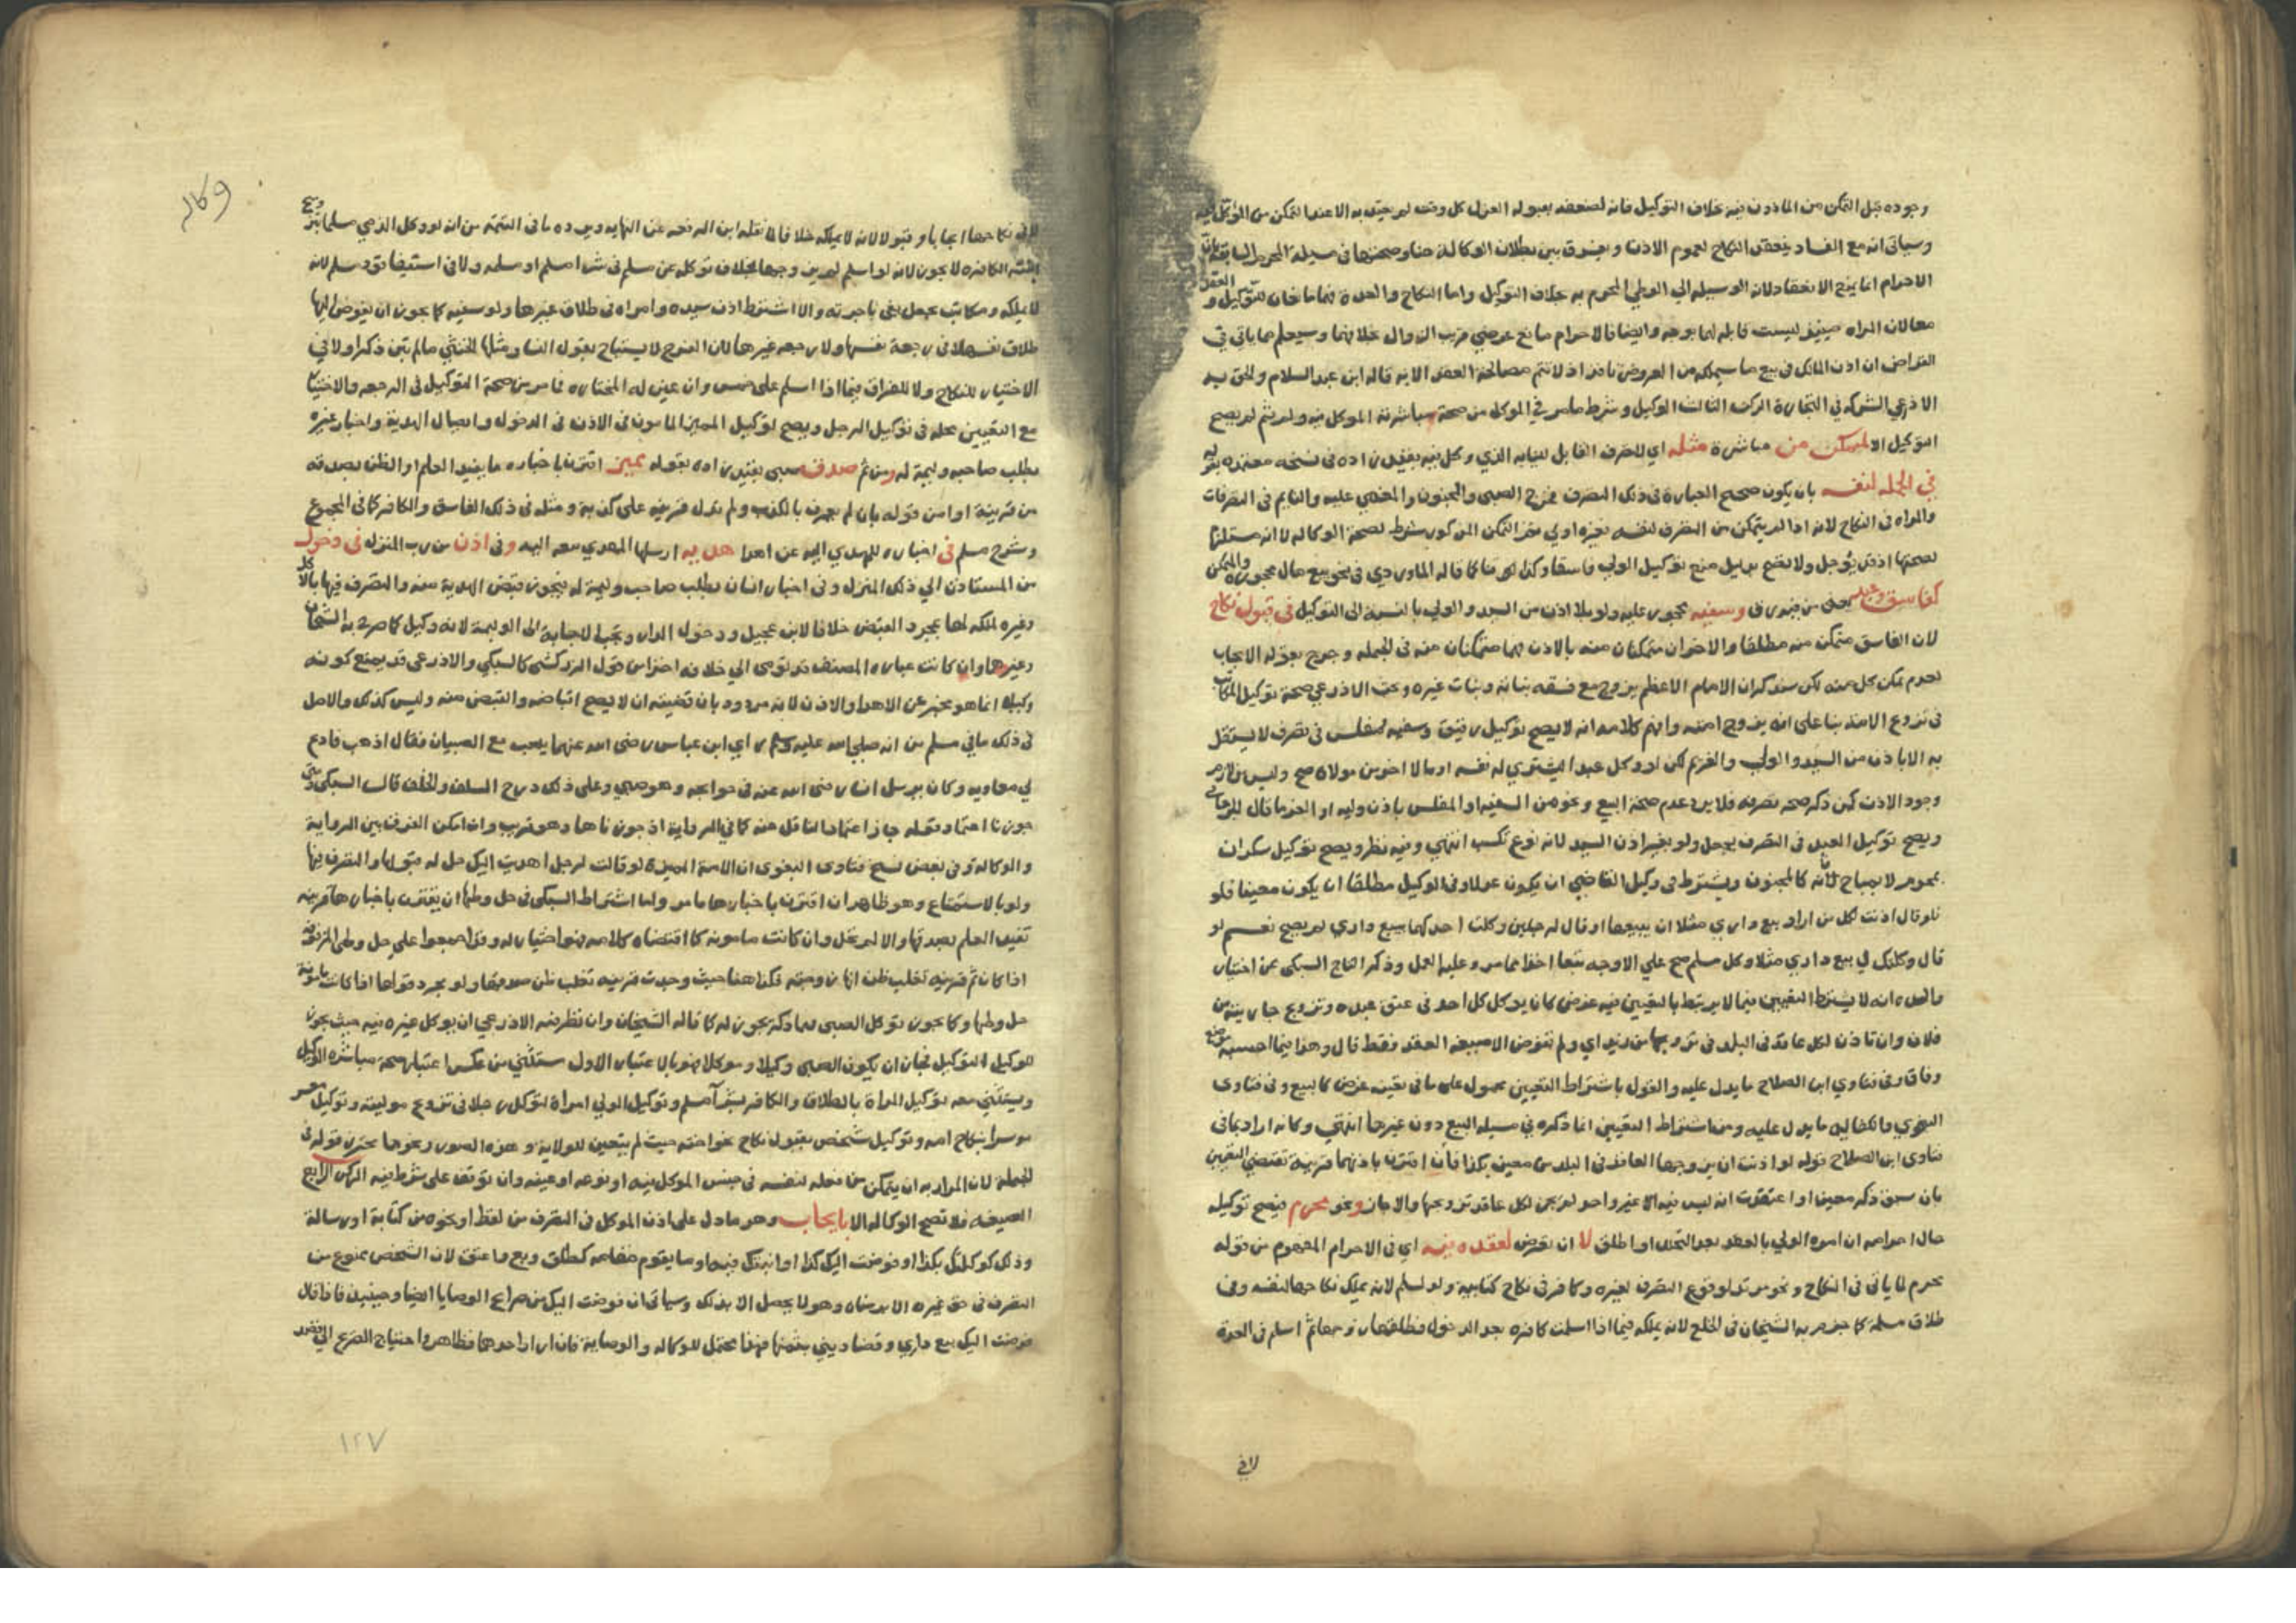 وجوده قبل التمكن من الماذون فيه بخلاف التوكيل فانه لضعفه بقبوله العزل كل وقت لم يحتج به الا عند التمكن من الموكل فيه
وسياتي انه مع الفساد ينعقد النكاح لعموم الاذن ويفرق بين بطلان الوكالة هنا وصحتها في مسيلة المحرم السابقة بان
الاحرام انما يمنع الانعقاد لانه الوسيله الي الوطي المحرم به بخلاف التوكيل واما النكاح والعدة فهما مانعان للتوكيل والعقد
معا لان المراه حينيذ ليست قابله لهما بوجه وايضا فالاحرام مانع عرضي قريب الزوال بخلافهما وسيعلم مما ياتي في
القراض ان اذن المالك في بيع ما سيملكه من العروض نافذ اذ لا تتم مصالحة العقد الا به قاله ابن عبد السلام والحق به
الاذرعي الشركه في التجارة الركن الثالث الوكيل وشرط ما مر في الموكل من صحة مباشرته الموكل فيه ولم يثم لم يصح
التوكيل الا لمتمكن من مباشرة مثله اي للتصرف القابل للنيابه الذي وكل فيه بقيد زاده في نسخه معتمده بقوله
في الجملة لنفسه بان يكون صحيح العبارة في ذلك التصرف فخرج الصبي والمجنون والمغمي عليه والنايم في التصرفات
والمراه في النكاح لانه اذا لم يتمكن من التصرف لنفسه فغيره اولي
لان الفاسق متمكن منه مطلقا والاخران متمكنان منه بالاذن فهما متمكنان منه في الجمله وخرج بقوله الايجاب
لعدم تمكن كل منه لكن سنذكر ان الامام الاعظم يزوج مع فسقه بناته وبنات غيره وبحث الاذرعي صحة توكيل المكاتب
في تزوج الامة بنا علي انه يزوج امته وافهم كلامه انه لا يصح توكيل رقيق وسفيه ومفلس في تصرف لا يستقل
به الا باذن من السيد والولي والغريم لكن لو وكل عبدا ليشتري له نفسه او مالا اخر من مولاه صح وليس من لازم
وجود الاذن
ويصح توكيل العبد في التصرف بجعل ولو بغير اذن السيد لانه نوع تكسب انتهي وفيه نظر ويصح توكيل سكران
بمحرم لا بمباح لانه كالمجنون ويشترط في وكيل القاضي ان يكون عدلا وفي الوكيل مطلقا ان يكون معينا فلو
فلو قال اذنت لكل من اراد بيع داري مثلا ان يبيعها او قال لرجلين وكلت احدكما ببيع داري لم يصح نعم لو
قال وكلتك في بيع داري مثلا وكل مسلم صح علي الاوجه تبعا اخذا مما مر وعليه العمل وذكر التاج السبكي عن اختيار
والده انه لا يشترط التعيين فيما لا يرتبط بالتعيين فيه غرض كان يوكل كل احد في عتق عبده وتزويج جاريته من
فلان وان تاذن لكل عاقد في البلد في تزويجها من زيد اي ولم تفوض الا صيغة العقد فقط قال وهذا فيما احسبه
وفاق وفي فتاوي ابن الصلاح ما يدل عليه والقول باشتراط التعيين محمول علي ما في تعيينه غرض كالبيع وفي فتاوى
البغوي والكفاية ما يدل عليه ومن اشتراط التعيين انما ذكره في مسيله البيع دون غيرها انتهي وكانه اراد بما في
فتاوى ابن الصلاح قوله لو اذنت ان يزوجها العاقد في البلد من معين بكذا فان اقترن باذنهما قرينة تقتضي التعيين
بان سبق ذكر معين او اعتقدت انه ليس فيه الا غير واحد لم يجز لكل عاقد تزويجها والا جاز ونحو محرم فيصح توكيله
حال احرامه ان امره الولي بالعقد بعد التحلل او اطلق لا ان تعرض لعقده فيه اي في الاحرام المفهوم من قوله
محرم لما ياتي في النكاح ونحو مرتد لوقوع التصرف لغيره وكافر في نكاح كتابيه ولو لمسلم لانه يملك نكاحها لنفسه وفي
طلاق مسلمة كما جزم به الشيخان في الخلع لانه يملكه فيما اذا اسلمت كافره بعد الدخول فطلقها زوجها ثم اسلم في العدة
لا في
وكاله
لا في نكاحها ايجابا وقبولا لانه لا يملكه خلافا لما نقله ابن الرفعه عن النهايه ويرده ما في التتمة من انه لو وكل الذمي مسلما في تزويج
ابنته الكافره لا يجوز لانه لو اسلم لم يزوجها بخلاف توكله عن مسلم في شرا مسلم او سلمه ولا في استيفا قود مسلم لانه
لا يملكه ومكاتب بجعل يفي باجرته والا اشترط اذن سيده وامراه في طلاق غيرها ولو سفيه كما يجوز ان يفوض اليها
طلاق نفسها لا في رجعة نفسها ولا رجعه غيرها لان الفرج لا يستباح بقول النسا ومثلها الخنثي ما لم تبن ذكرا ولا في
الاختيار للنكاح ولا للفراق فيما اذا اسلم على خمس وان عين له المختاره فما مر من صحة التوكيل في الرجعه والاختيار
مع التعيين محله في توكيل الرجل ويصح توكيل المميز المامون في الاذن في الدخول وايصال الهدية واخبار غيره
بطلب صاحب وليمة له ومن ثم صدق صبي بقيد زاده بقوله مميز اقترن باخباره ما يفيد العلم او الظن بصدقه
من قرينة او من قوله بان لم يعرف بالكذب ولم تدل قرينه على كذبه ومثله في ذلك الفاسق والكافر كما في المجموع
وشرح مسلم في اخباره للمهدي اليه عن اهدا هديه ارسلها المهدي معه اليه وفي اذن من رب المنزل في دخول
من المستاذن الي ذلك المنزل وفي اخبار انسان بطلب صاحب وليمة له فيجوز قبض الهدية منه والتصرف فيها بالاكل
وغيره لملكه لها بمجرد القبض خلافا لابن عجيل ودخول الدار وتجب الاجابة الى الوليمة لانه وكيل كما صرح به الشيخان
وغيرهما وان كانت عباره المصنف قد تومي الي خلافه احترازا من قول الزركشي كالسبكي والاذرعي قد يمنع كونه
وكيلا انما هو مخبر عن الاهدا والاذن لانه مردود بان قضيته ان لا يصح اقباضه والقبض منه وليس كذلك والاصل
في ذلك ما في مسلم من انه صلي الله عليه وسلم راي ابن عباس رضي الله عنهما يلعب مع الصبيان فقال اذهب فادع
لي معاويه وكان يرسل انسا رضي الله عنه في حوايجه وهو صبي وعلى ذلك درج السلف والخلف قال السبكي ومتي
جوزنا اعتماد قوله جاز اعتماد الناقل عنه كما في الرواية اذ جوزناها وهو قريب وان امكن الفرق بين الرواية
والوكاله وفي بعض نسخ فتاوى البغوي ان الامة المميزة لو قالت لرجل اهديت اليك حل له قبولها والتصرف فيها
ولو بالاستمتاع وهو ظاهر ان اقترن باخبارها ما مر ولهذا اشتراط السبكي في حل وطئها ان يقترن باخبارها قرينه
تفيد العلم بصدقها والا لم تحل وان كانت مامونه كما اقتضاه كلامه فهو اختيار له وقد اجمعوا علي حل وطي المزفوفة
اذا كان ثم قرينه تغلب ظن انها زوجته فكذا هنا حيث وجدت قرينه تغلب ظن صدقها ولو بمجرد قولها اذا كانت مامونة
حل وطئها وكما يجوز توكل الصبي فيما ذكر يجوز له كما قاله الشيخان وان نظر فيه الاذرعي ان يوكل غيره فيه حيث يجوز
للوكيل التوكيل فبان ان يكون الصبي وكيلا وموكلا فهو بالاعتبار الاول مستثني من عكس اعتبار صحة مباشرة الوكيل
ويستثني معه توكيل المراة بالطلاق والكافر بشرا مسلم وتوكيل الولي امراة لتوكل رجلا في تزوج موليته وتوكيل معسر
موسرا بنكاح امه وتوكيل شخص بقبول نكاح نحو اخته حيث لم يتعين للولاية وهذه الصور ونحوها محترز قوله في
الجمله لان المراد به ان يتمكن من فعله لنفسه في جنس الموكل فيه او نوعه او عينه وان توقف على شرط فيه الركن الرابع
الصيغه فلا تصح الوكاله الا بايجاب وهو ما دل على اذن الموكل في التصرف من لفظ او نحوه من كتابة او رسالة
وذلك كوكلتك بكذا او فوضت اليك كذا او انبتك فيه او ما يقوم مقامه كطلق وبع واعتق لان الشخص ممنوع من
التصرف في حق غيره الا برضاه وهو لا يحصل الا بذلك وسياتي ان فوضت اليك من صرايح الوصايا ايضا وحينيذ فاذا قال
فوضت اليك بيع داري وقضا ديني بثمنها فهذا محتمل للوكاله والوصاية فان اراد احدهما فظاهر واحتياج الصريح الي قصد
١٢٧